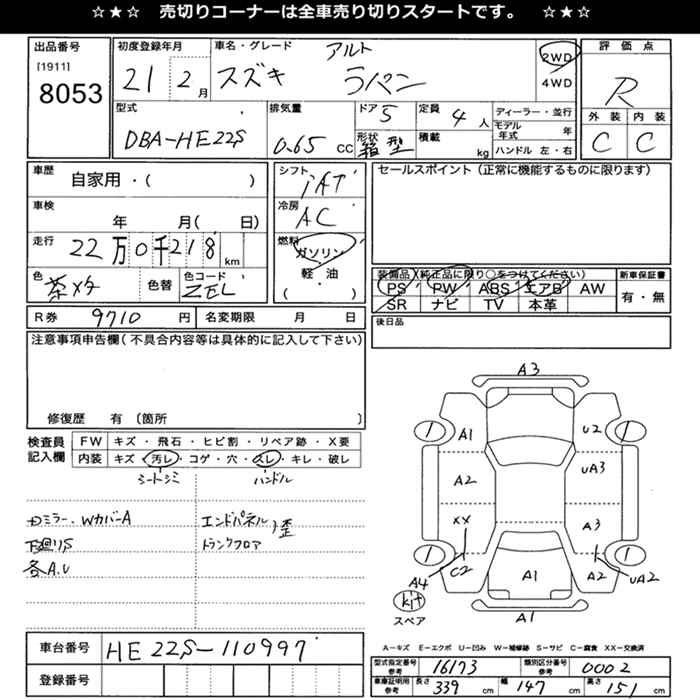 ☆★☆ 売切りコーナーは全車売り切りスタートです。 ☆★☆
出品番号 初度登録年月 車名・グレード アルト 2WD 評価点
[1911] 8053 21 2月 スズキ ラパン 4WD R
型式 排気量 ドア 5 定員 4人 ディーラー・並行 外装 内装
DBA-HE22S 0.65 CC 形状 箱型 積載 kg モデル年式 年 C C
ハンドル 左・右
車歴 自家用・( ) シフト IAT セールスポイント(正常に機能するものに限ります)
車検 年 月( 日) 冷房 AC
走行 22万0千218 km 燃料 ガソリン
軽油
( )
色 茶メタ 色替 色コード ZEL 装備品(純正品に限り○をつけてください) 新車保証書
PS PW ABS エアB AW 有・無
SR ナビ TV 本革
R券 9710 円 名変期限 月 日 後日品
注意事項申告欄(不具合内容等は具体的に記入して下さい)
修復歴 有 〔箇所 〕
検査員記入欄 FW キズ・飛石・ヒビ割・リペア跡・X要
内装 キズ・汚レ・コゲ・穴・スレ・キレ・破レ
シートシミ ハンドル
ミラー.WカバーA エンドパネル 歪
下廻りS トランクフロア
各A.U
A3
1 A1 U2 1
A2 UA3
XX A3
1 C2 A1 A2 1
A4 UA2
kit
スペア A1
A-キズ E-エクボ U-凹み W-補修跡 S-サビ C-腐食 XX-交換済
車台番号 HE22S-110997
登録番号
型式指定番号参考 16173 類別区分番号参考 0002
車庫証明用参考 長さ 339 cm 幅 147 cm 高さ 151 cm